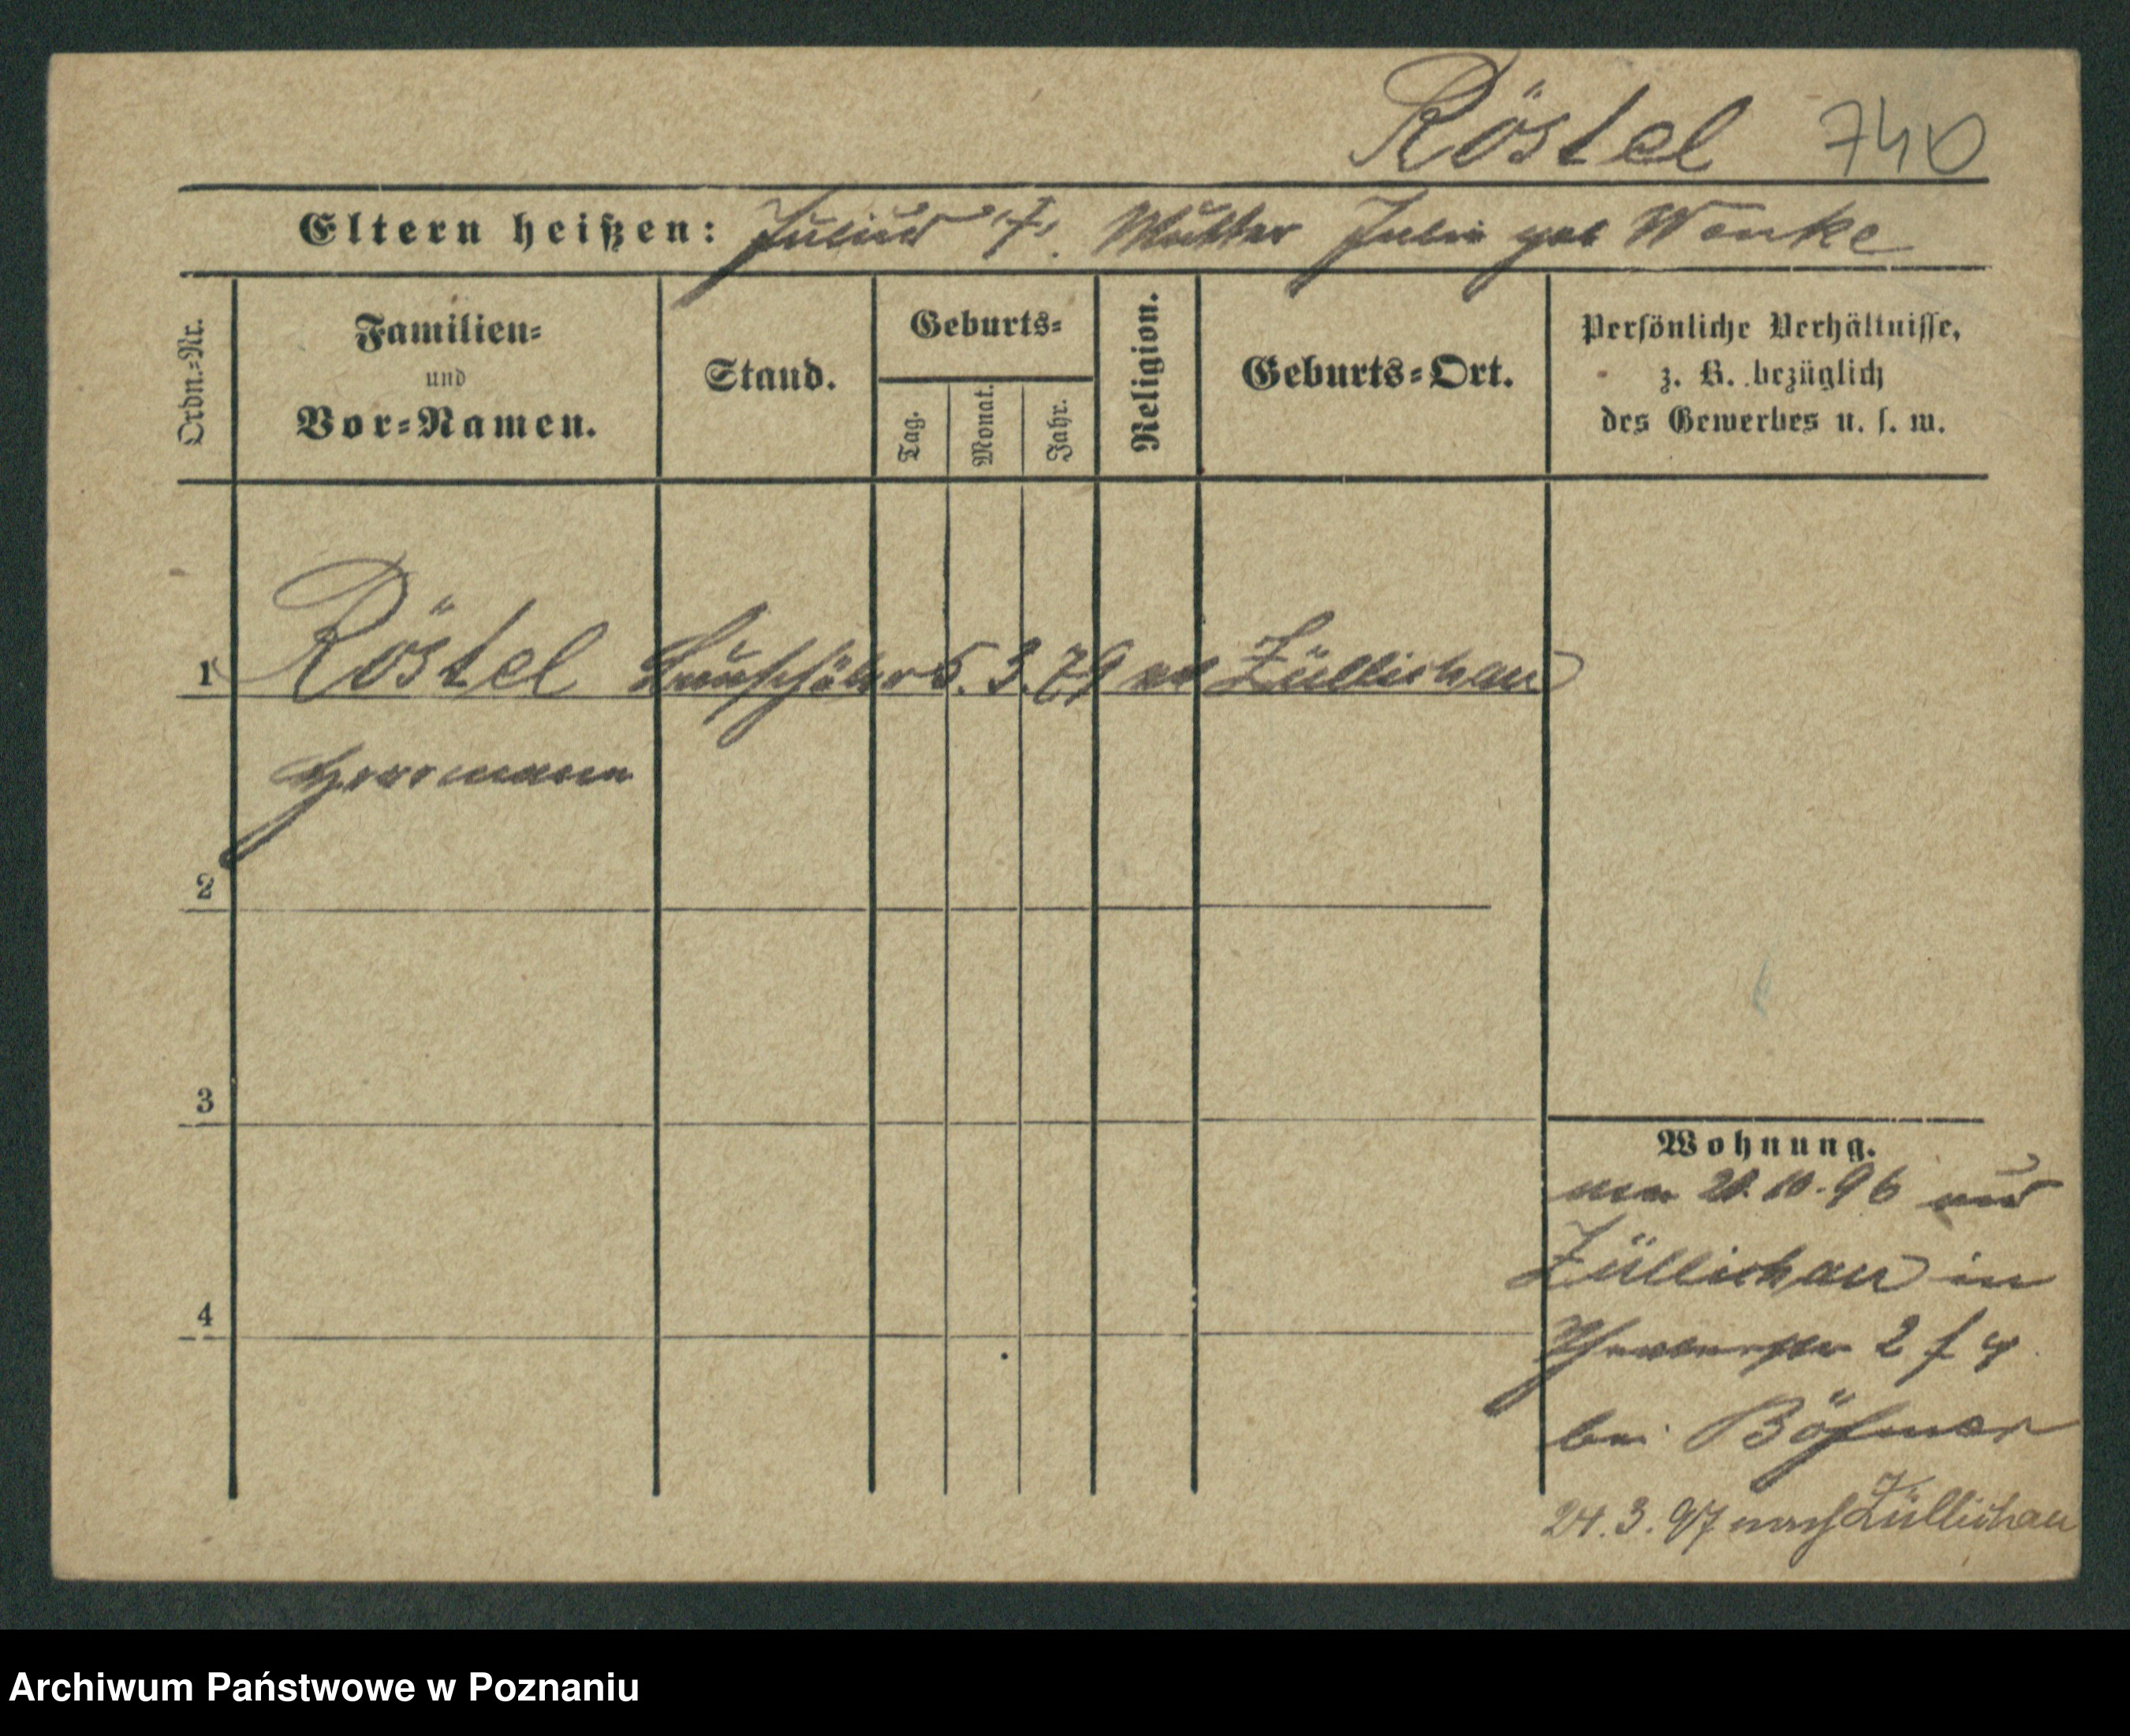 Röstel 740
Eltern heißen: Julius †. Mutter Julie geb Wenke
Ordn.=Nr.
Familien=
und
Vor=Namen.
Stand.
Geburts=
Tag.
Monat.
Jahr.
Religion.
Geburts=Ort.
Persönliche Verhältnisse,
z. B. bezüglich
des Gewerbes u. s. w.
1 Röstel 5. 3. 79 Züllichau
Herrmann
2
3
4
Wohnung.
10.96 aus
Züllichau in
2
bei Böhmer
24.3.97 nach Züllichau
Archiwum Państwowe w Poznaniu